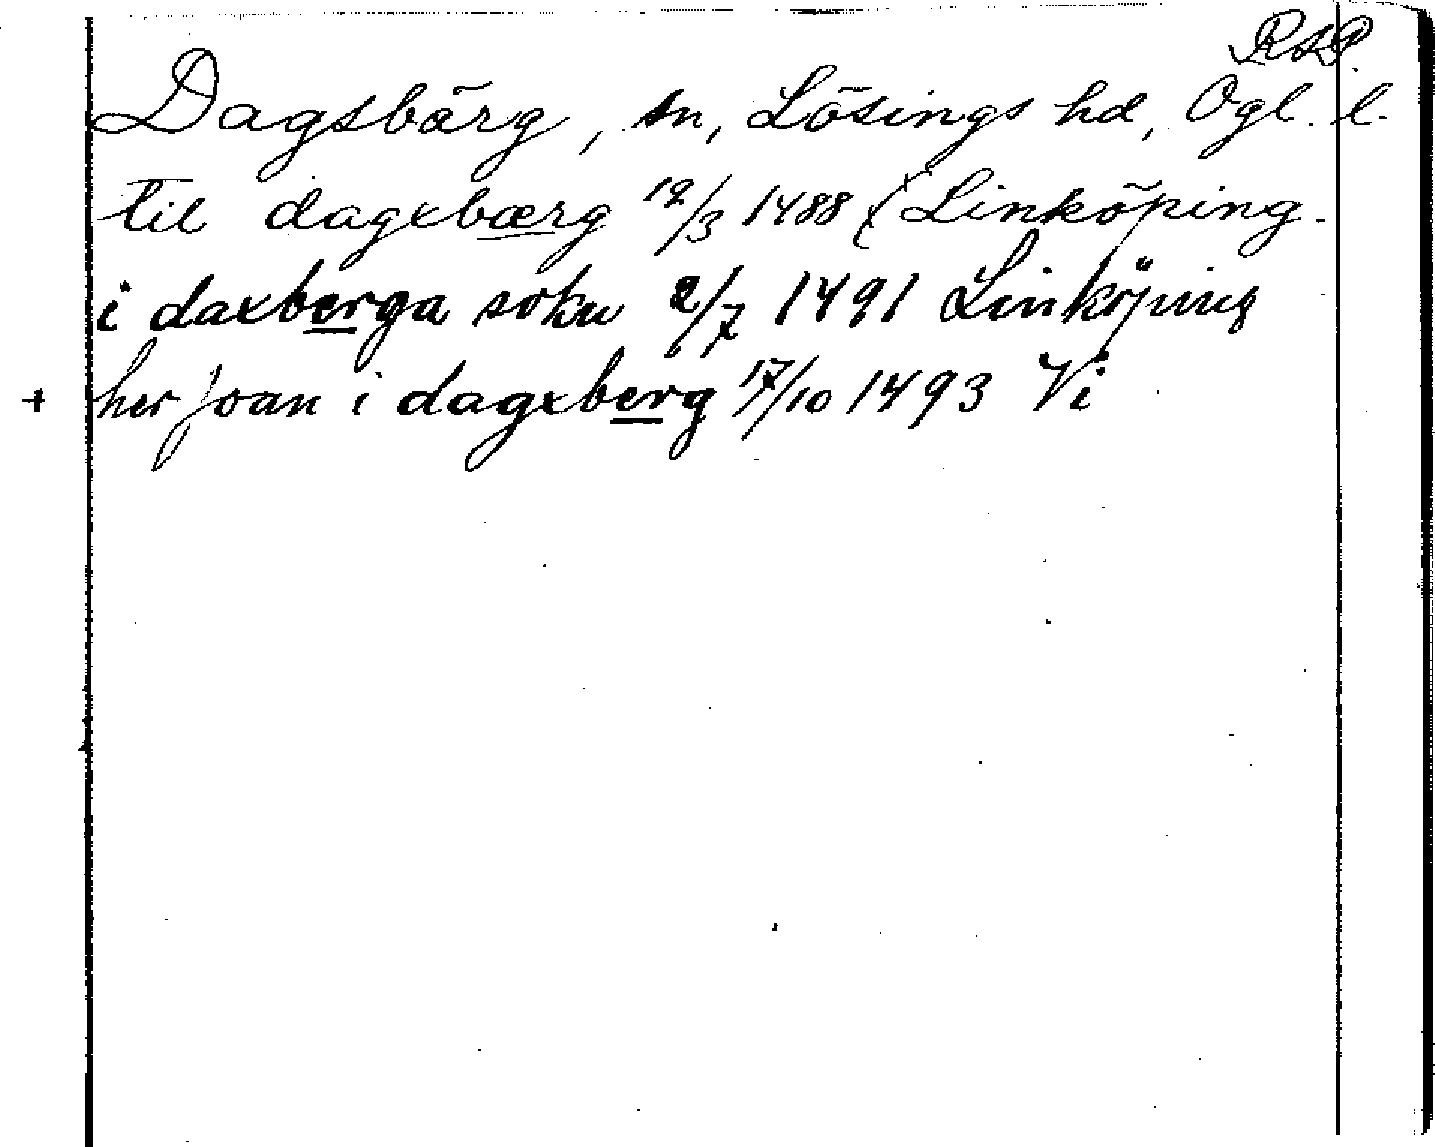 RAP.
Dagsbärg, sn, Lösings hd, Ögl. l.
til dagxbærg 12/3 1488 (Linköping.
i daxberga sokn 2/7 1491 Linköping
+ her joan i dagxberg 17/10 1493 Vi